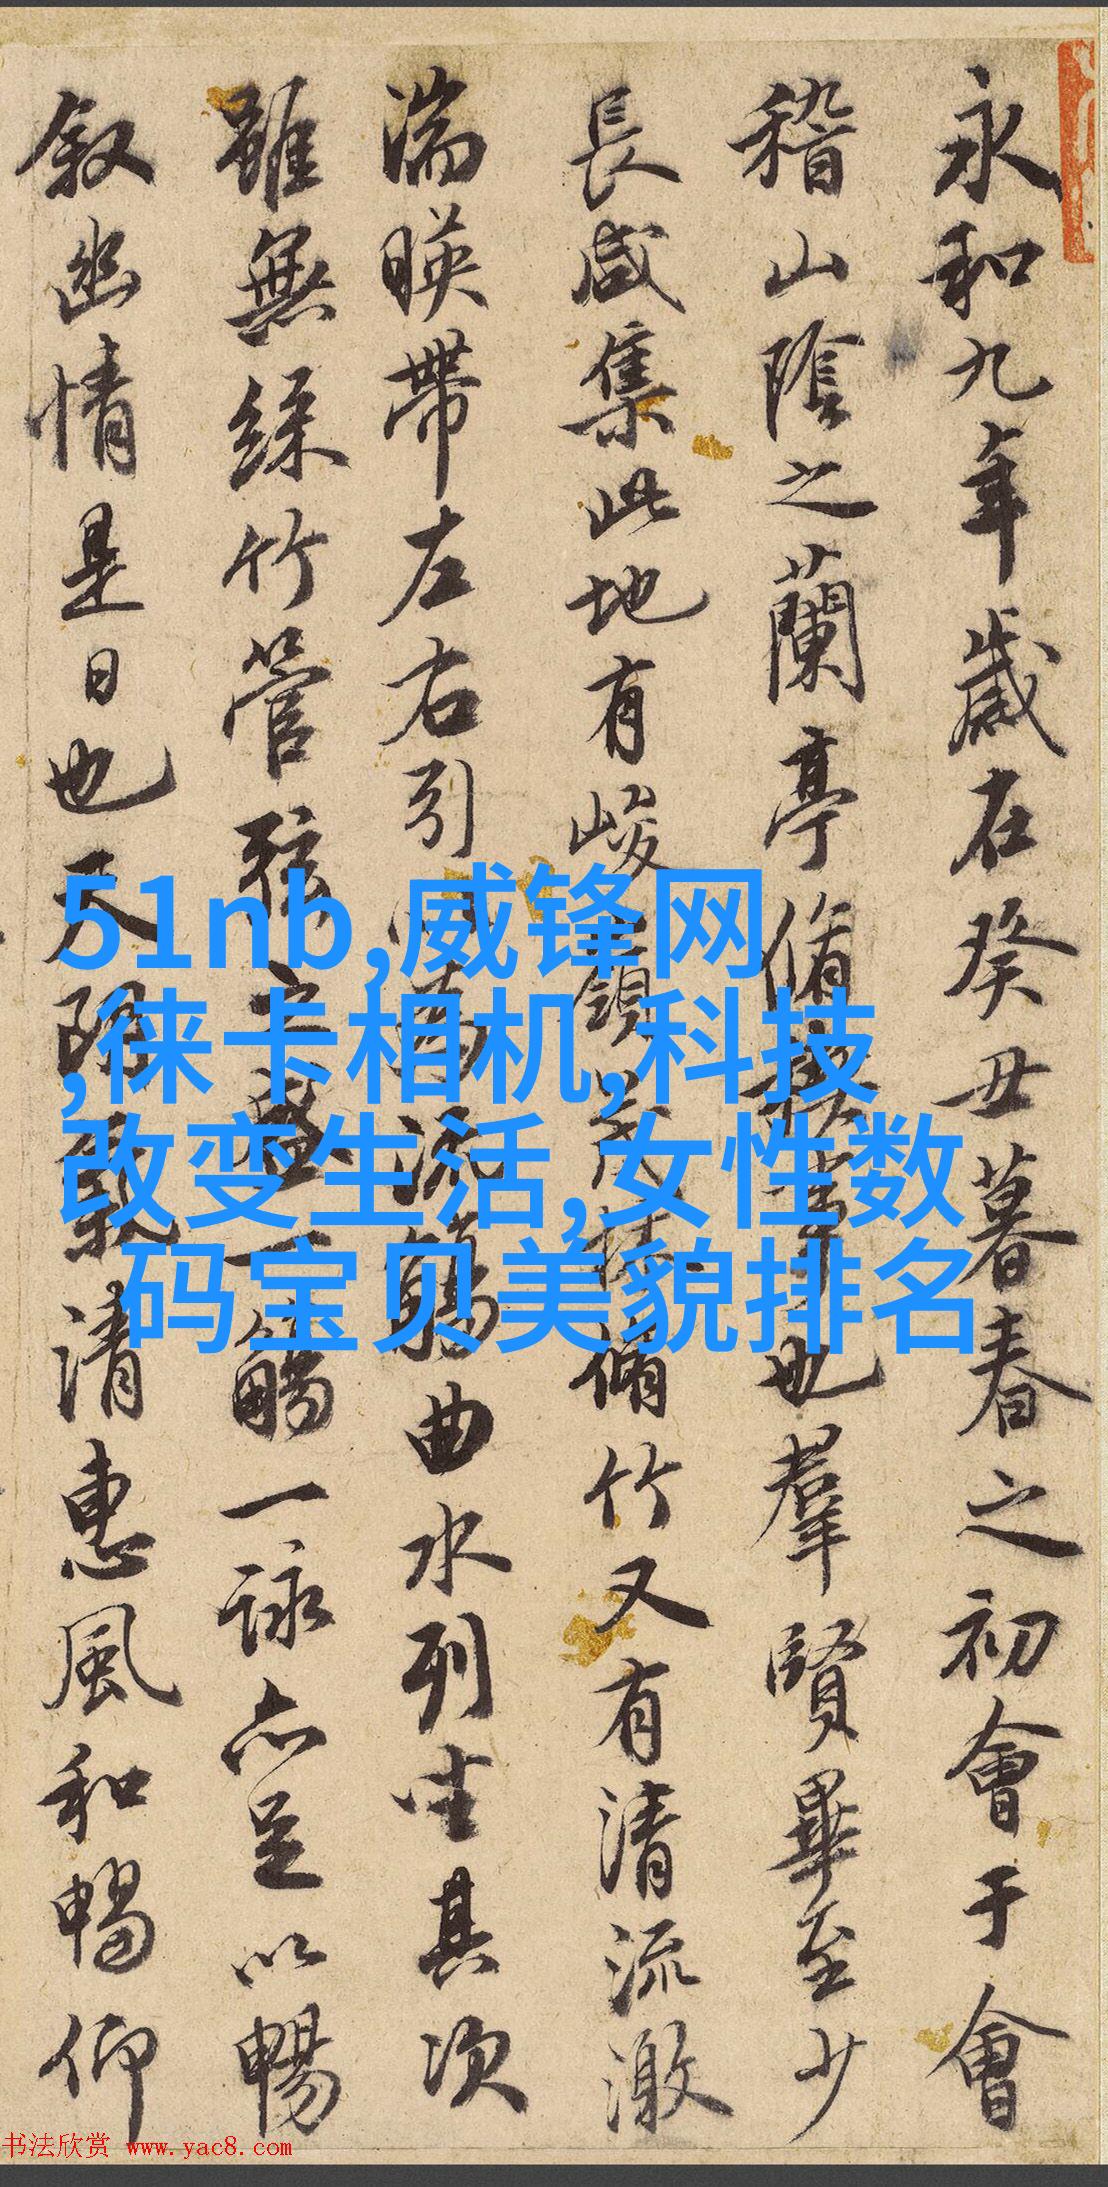 永和九年歲在癸丑暮春之初會于會
稽山陰之蘭亭脩禊事也羣賢畢至少
長咸集此地有峻領茂林脩竹又有清流激
湍暎帶左右引以為流觴曲水列坐其次
雖無絲竹管弦之盛一觴一詠亦足以暢
叙幽情是日也天朗氣清惠風和暢仰
51nb,威锋网
,徕卡相机,科技
改变生活,女性数
码宝贝美貌排名
书法欣赏 www.yac8.com